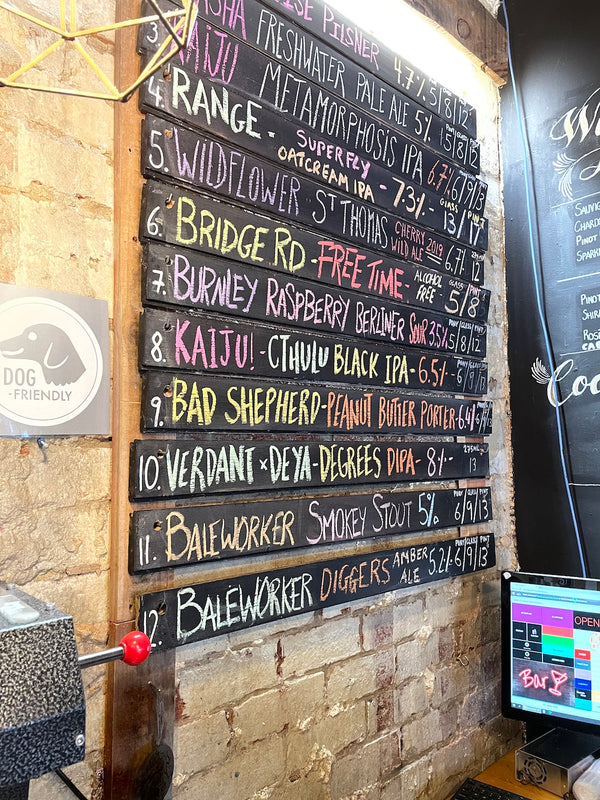 PILSNER 4.7%
3. KAIJU FRESHWATER PALE ALE 5% 5/8/12
4. KAIJU METAMORPHOSIS IPA 6.7% 6/9/13
RANGE - SUPERFLY - OATCREAM IPA 7.3% - GLASS PINT 13/17
5. WILDFLOWER ST THOMAS CHERRY 2019 WILD ALE - 6.7% 12
6. BRIDGE RD - FREE TIME - ALCOHOL FREE GLASS 5/8
7. BURNLEY RASPBERRY BERLINER SOUR 3.5% PONY GLASS PINT 5/8/12
8. KAIJU! - CTHULU BLACK IPA - 6.5% -
9. BAD SHEPHERD - PEANUT BUTTER PORTER - 6.4%
10. VERDANT x DEYA - DEGREES DIPA - 8% - 275ML 13
11. BALEWORKER SMOKEY STOUT 5% PONY GLASS PINT 6/9/13
12 BALEWORKER DIGGERS AMBER ALE 5.2% - PONY GLASS PINT 6/9/13
DOG
-FRIENDLY
PINOT
SPARK
PINOT
SHIR
OPEN
Bar